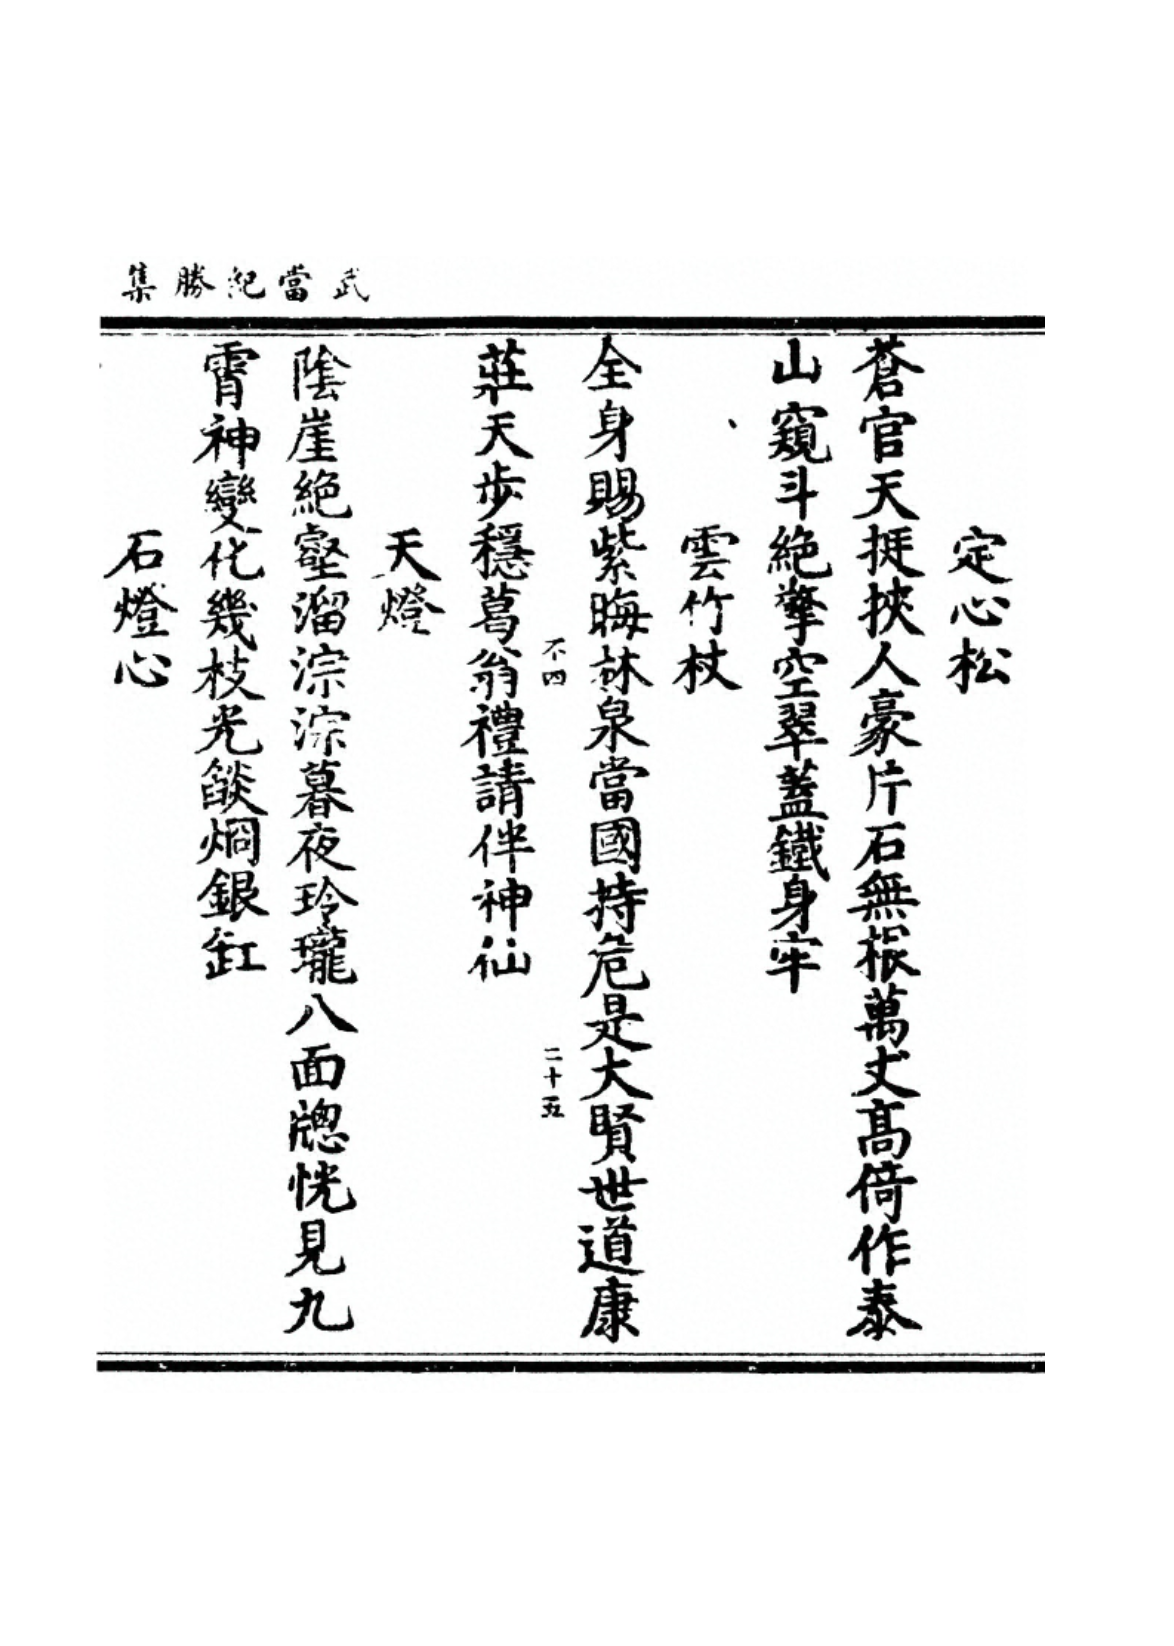 武當紀勝集
定心松
蒼官天挺挾人豪片石無根萬丈高倚作泰
山窺斗絶擎空翠蓋鐵身牢
雲竹杖
全身賜紫晦林泉當國持危是大賢世道康
不四
二十五
莊天步穩葛翁禮請伴神仙
天燈
陰崖絶壑溜淙淙暮夜玲瓏八面牕恍見九
霄神變化幾枝光燄烱銀缸
石燈心